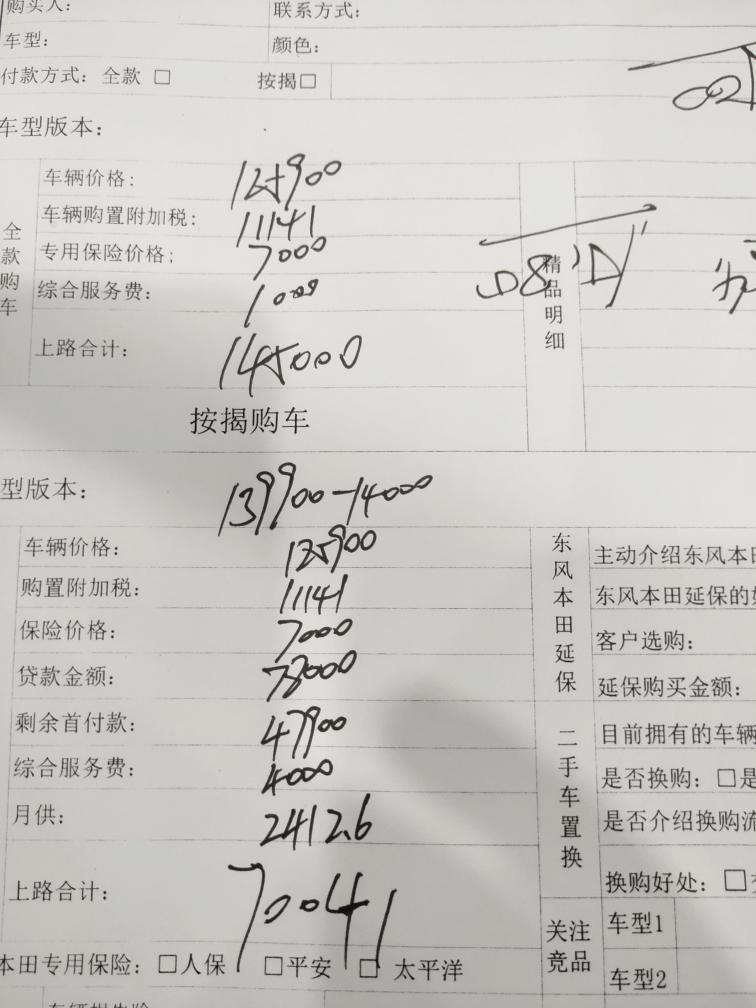 购买人: 联系方式:
车型: 颜色:
付款方式: 全款 □ 按揭□
车型版本:
全款购车
车辆价格: 125900
车辆购置附加税: 11141
专用保险价格: 7000
综合服务费: 1000
上路合计: 145000
精品明细
按揭购车
型版本: 139900-14000
车辆价格: 125900
购置附加税: 11141
保险价格: 7000
贷款金额: 78000
剩余首付款: 47900
综合服务费: 4000
月供: 2412.6
上路合计: 70041
东风本田延保
主动介绍东风本田
东风本田延保的
客户选购:
延保购买金额:
二手车置换
目前拥有的车辆
是否换购: □是
是否介绍换购流
换购好处: □
关注竞品
车型1
车型2
本田专用保险: □人保 □平安 □ 太平洋